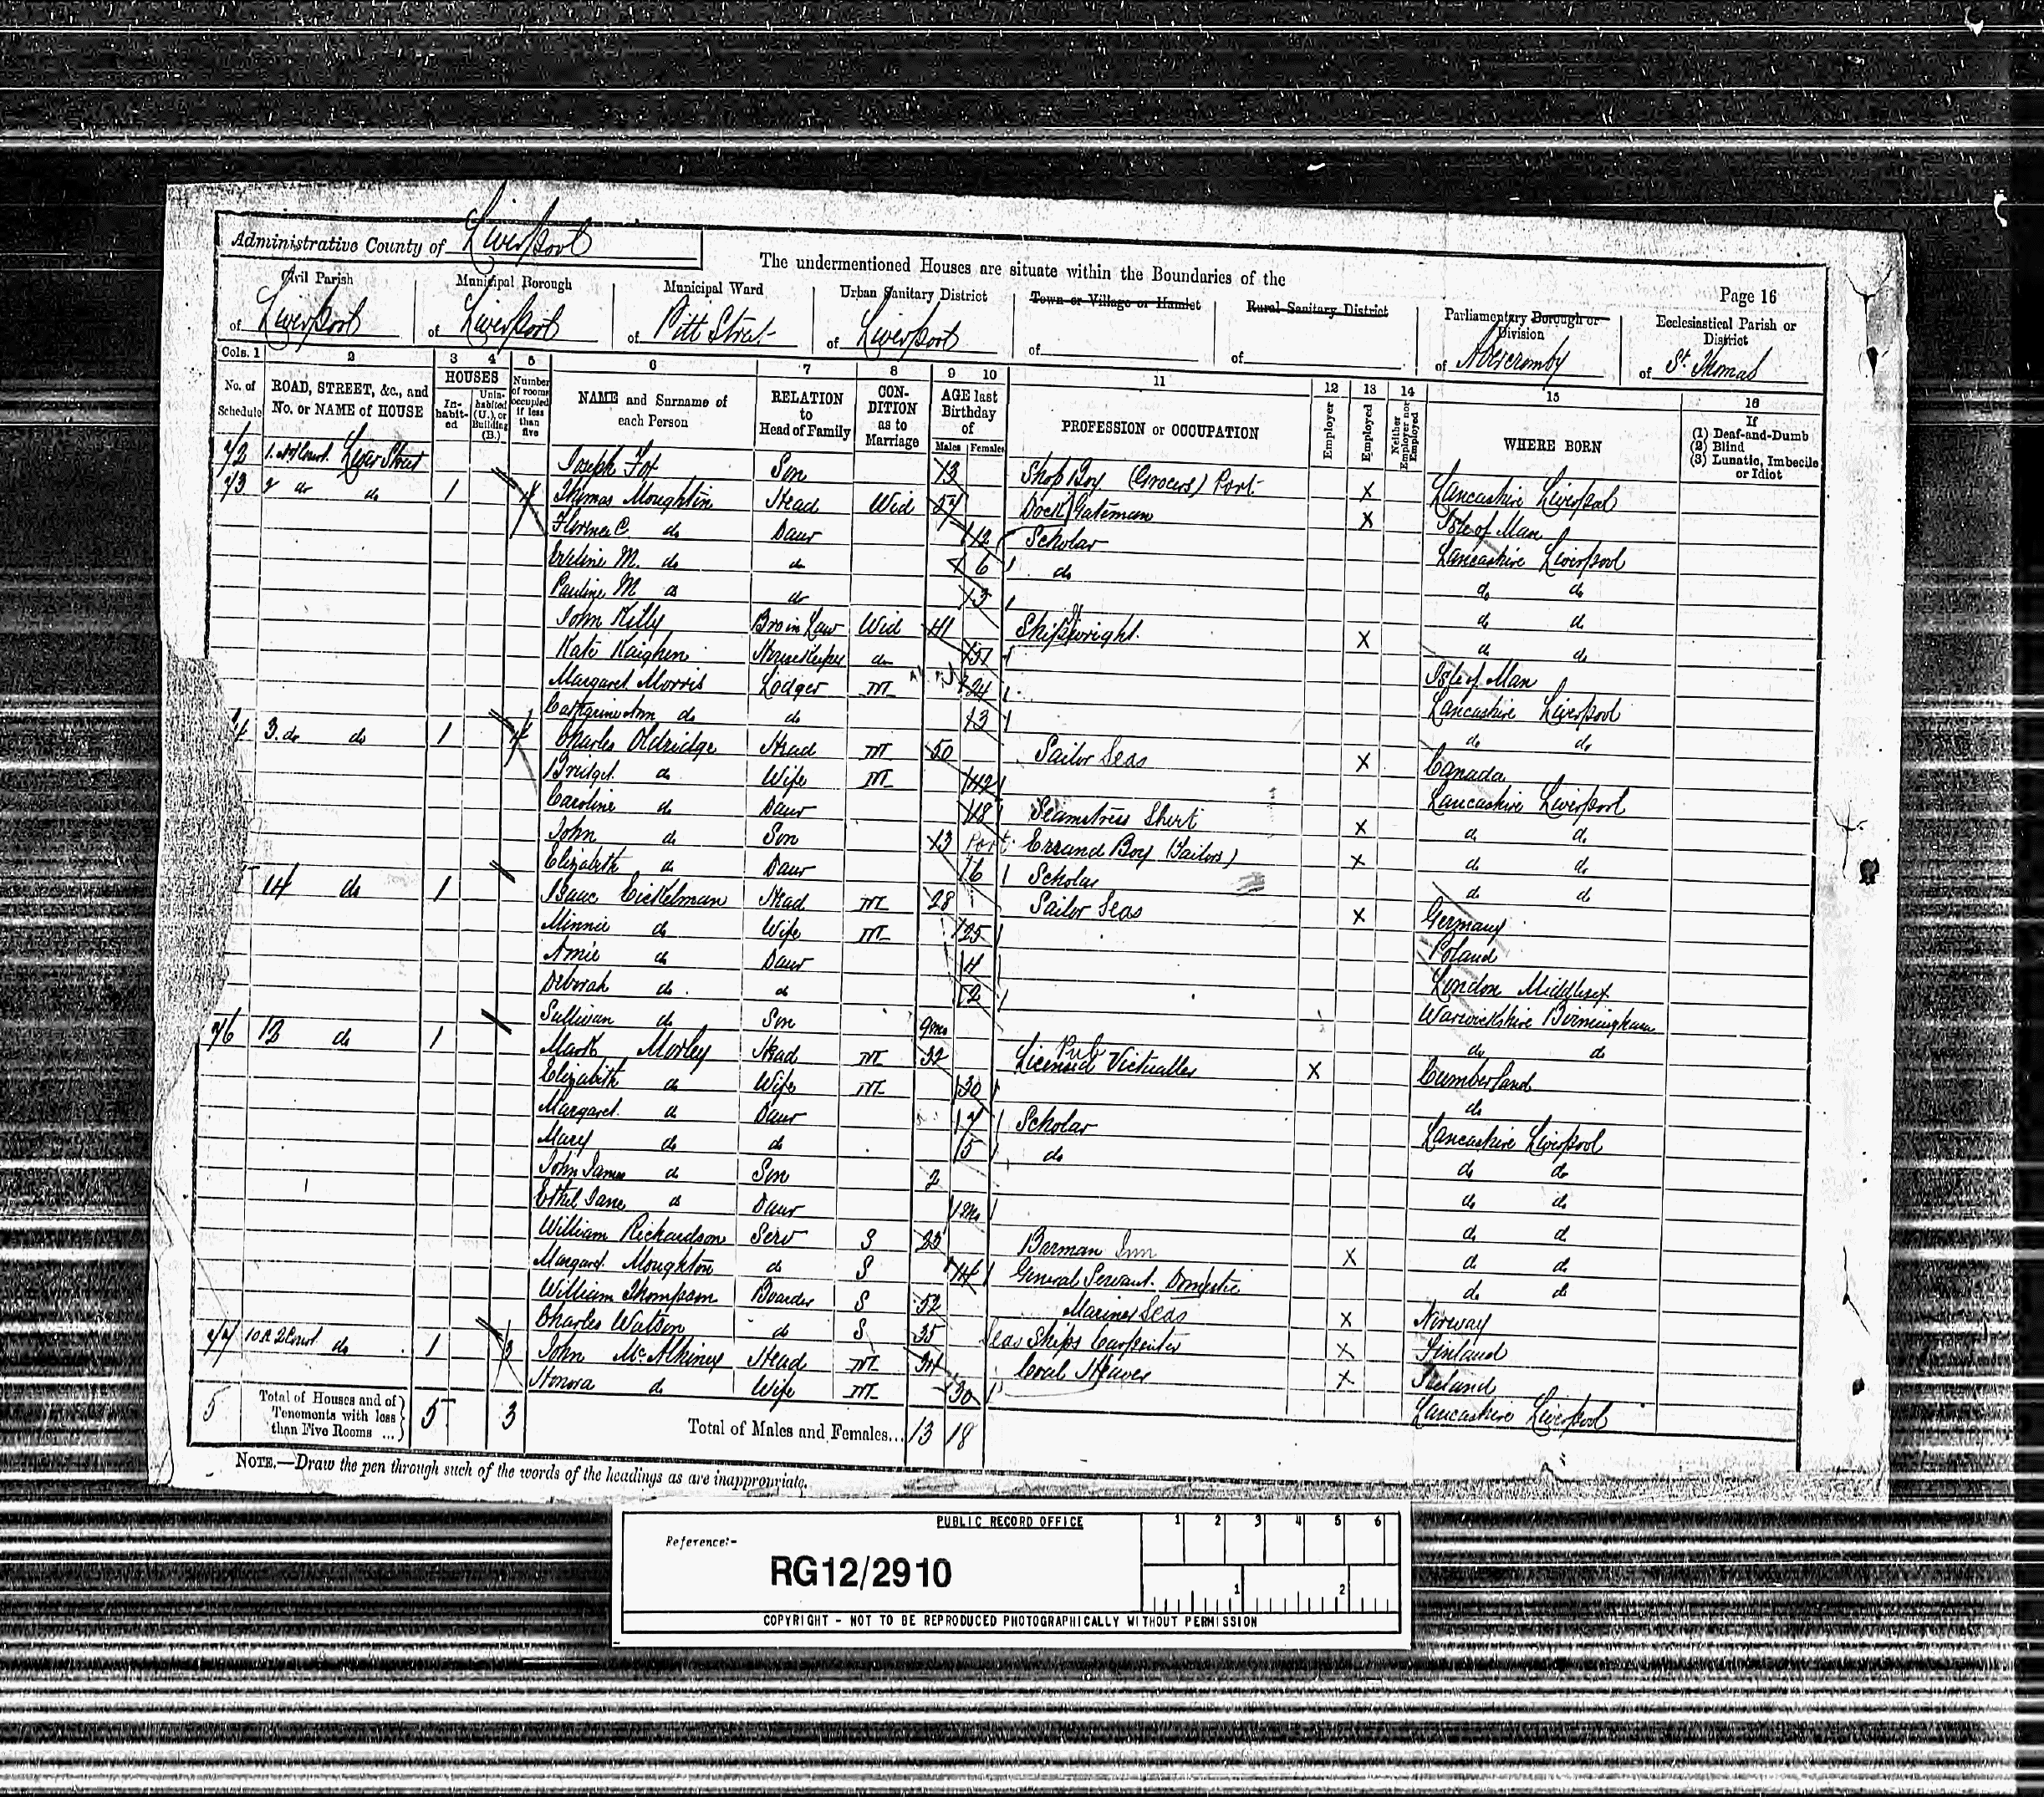 Administrative County of Liverpool
The undermentioned Houses are situate within the Boundaries of the
Page 16
Civil Parish of Liverpool
Municipal Borough of Liverpool
Municipal Ward of Pitt Street
Urban Sanitary District of Liverpool
Town or Village or Hamlet of
Rural Sanitary District of
Parliamentary Borough or Division of Abercromby
Ecclesiastical Parish or District of St. Thomas
Cols. 1 2 3 4 5 6 7 8 9 10 11 12 13 14 15 16
No. of Schedule
ROAD, STREET, &c., and No. or NAME of HOUSE
HOUSES
In-habit-ed
Unin-habited (U.), or Building (B.)
Number of rooms occupied if less than five
NAME and Surname of each Person
RELATION to Head of Family
CON-DITION as to Marriage
AGE last Birthday of
Males Females
PROFESSION or OCCUPATION
Employer
Employed
Neither Employer nor Employed
WHERE BORN
If
(1) Deaf-and-Dumb
(2) Blind
(3) Lunatic, Imbecile or Idiot
72 Liver Street Joseph Fox Son 13 Shop Boy (Grocers) Port. X Lancashire Liverpool
73 2 do do 1 4 Thomas Moughtin Head Wid Dock Gateman X Isle of Man
Florence C. do Daur 12 Scholar Lancashire Liverpool
Eveline M. do do 6 do do do
Pauline M do do 3 do do
John Kelly Bro in Law Wid 41 Shipwright. X do do
Kate Kaighen Housekeeper do 57 Isle of Man
Margaret Morris Lodger M 24 Lancashire Liverpool
Catherine Ann do do 3 do do
3. do do 1 4 Charles Oldridge Head M 50 Sailor Seas X Canada
Bridget do Wife M 42 Lancashire Liverpool
Caroline do Daur 18 Seamstress Shirt X do do
John do Son 13 Port. Errand Boy (Tailors) X do do
Elizabeth do Daur 6 Scholar do do
14 do 1 Isaac Eickelman Head M 28 Sailor Seas X Germany
Minnie do Wife M 25 Poland
Amie do Daur 4 London Middlesex
Deborah do do 2 Warwickshire Birmingham
Sullivan do Son 9mo do do
76 12 do 1 Mark Morley Head M 32 Licensed Victualler Pub X Cumberland
Elizabeth do Wife M 30 do
Margaret do Daur 7 Scholar Lancashire Liverpool
Mary do do 5 do do do
John James do Son 2 do do
Ethel Jane do Daur do do
William Richardson Serv S 25 Barman Inn X do do
Margaret Moughton do S General Servant. Domestic do do
William Thompson Boarder S 52 Mariner Seas X Norway
Charles Watson do S 35 Seas Ships Carpenter X Finland
77 do 1 3 John Head M 34 Coal Heaver X Ireland
Honora do Wife M 30 Lancashire Liverpool
5 Total of Houses and of Tenements with less than Five Rooms ... 5 3 Total of Males and Females... 13 18
NOTE.—Draw the pen through such of the words of the headings as are inappropriate.
PUBLIC RECORD OFFICE
Reference:-
RG12/2910
1 2 3 4 5 6
1 2
COPYRIGHT - NOT TO BE REPRODUCED PHOTOGRAPHICALLY WITHOUT PERMISSION